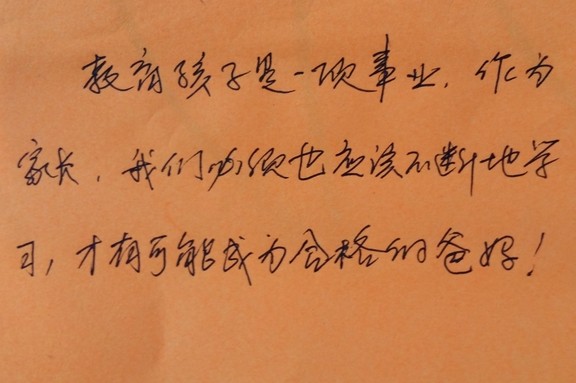 教育孩子是一项事业，作为
家长，我们必须也应该不断地学
习，才有可能成为合格的爸妈！